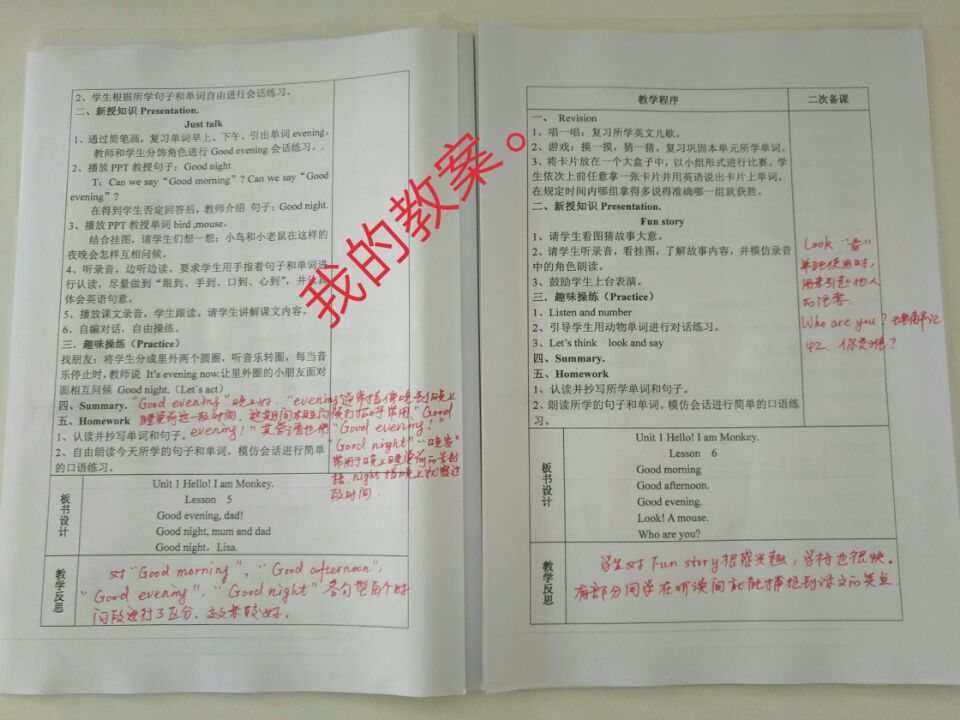 2、学生根据所学句子和单词自由进行会话练习。
二、新授知识 Presentation.
Just talk
1、通过简笔画，复习单词早上、下午，引出单词 evening，
教师和学生分饰角色进行 Good evening 会话练习。.
2、播放 PPT 教授句子：Good night
T: Can we say “Good morning”? Can we say “Good
evening”?
在得到学生否定回答后，教师介绍 句子：Good night.
3、播放 PPT 教授单词 bird ,mouse。
结合挂图，请学生们想一想：小鸟和小老鼠在这样的
夜晚会怎样互相问候。
4、听录音，边听边读，要求学生用手指着句子和单词进
行认读，尽量做到“眼到、手到、口到、心到”，并
体会英语句意。
5、播放课文录音，学生跟读。请学生讲解课文内容。
6、自编对话，自由操练。
三．趣味操练（Practice）
找朋友：将学生分成里外两个圆圈，听音乐转圈，每当音
乐停止时，教师说 It's evening now.让里外圈的小朋友面对
面相互问候 Good night.（Let's act）
四、Summary. “Good evening”晚上好，“evening
五、Homework 睡觉前这一段时间，
1、认读并抄写单词和句子。evening！” “Good evening！”
2、自由朗读今天所学的句子和单词，模仿会话进行简单
的口语练习。
“Good night”“晚安”
常用于晚上
night 指晚上
段时间．
板书设计
Unit 1 Hello! I am Monkey.
Lesson 5
Good evening, dad!
Good night, mum and dad
Good night，Lisa.
教学反思
对“Good morning”，“Good afternoon”，
“Good evening”，“Good night”各句型
问候进行了区分，效果较好。
我的教案。
教学程序
二次备课
一、 Revision
1、唱一唱：复习所学英文儿歌。
2、游戏：摸一摸，猜一猜，复习巩固本单元所学单词。
3、将卡片放在一个大盒子中，以小组形式进行比赛。学
生依次上前任意拿一张卡片并用英语说出卡片上单词，
在规定时间内哪组拿得多说得准确哪一组就获胜。
二、新授知识 Presentation.
Fun story
1、请学生看图猜故事大意。
2、请学生听录音，看挂图，了解故事内容，并模仿录音
中的角色朗读。
3、鼓励学生上台表演。
三．趣味操练（Practice）
1、Listen and number
2、引导学生用动物单词进行对话练习。
3、Let's think look and say
四、Summary.
五、Homework
1、认读并抄写所学单词和句子。
2、朗读所学的句子和单词，模仿会话进行简单的口语练
习。
Look “看”
单独使用时，
用来引起他人
的注意．
Who are you？
你是谁？
板书设计
Unit 1 Hello! I am Monkey.
Lesson 6
Good morning
Good afternoon.
Good evening.
Look! A mouse.
Who are you?
教学反思
学生对 Fun story 很感兴趣，学得也很快。
有部分同学在听读间就能捕捉到课文的笑点